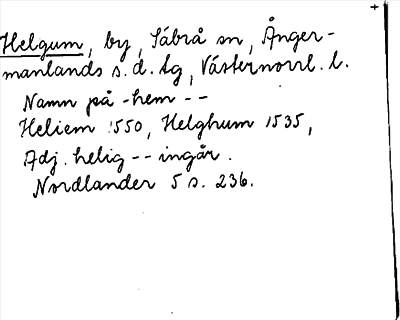 Helgum, by, Säbrå sn, Ånger-
manlands s.d. tg, Västernorrl. l.
Namn på -hem --
Heliem 1550, Helghum 1535,
Adj. helig -- ingår.
Nordlander 5 s. 236.